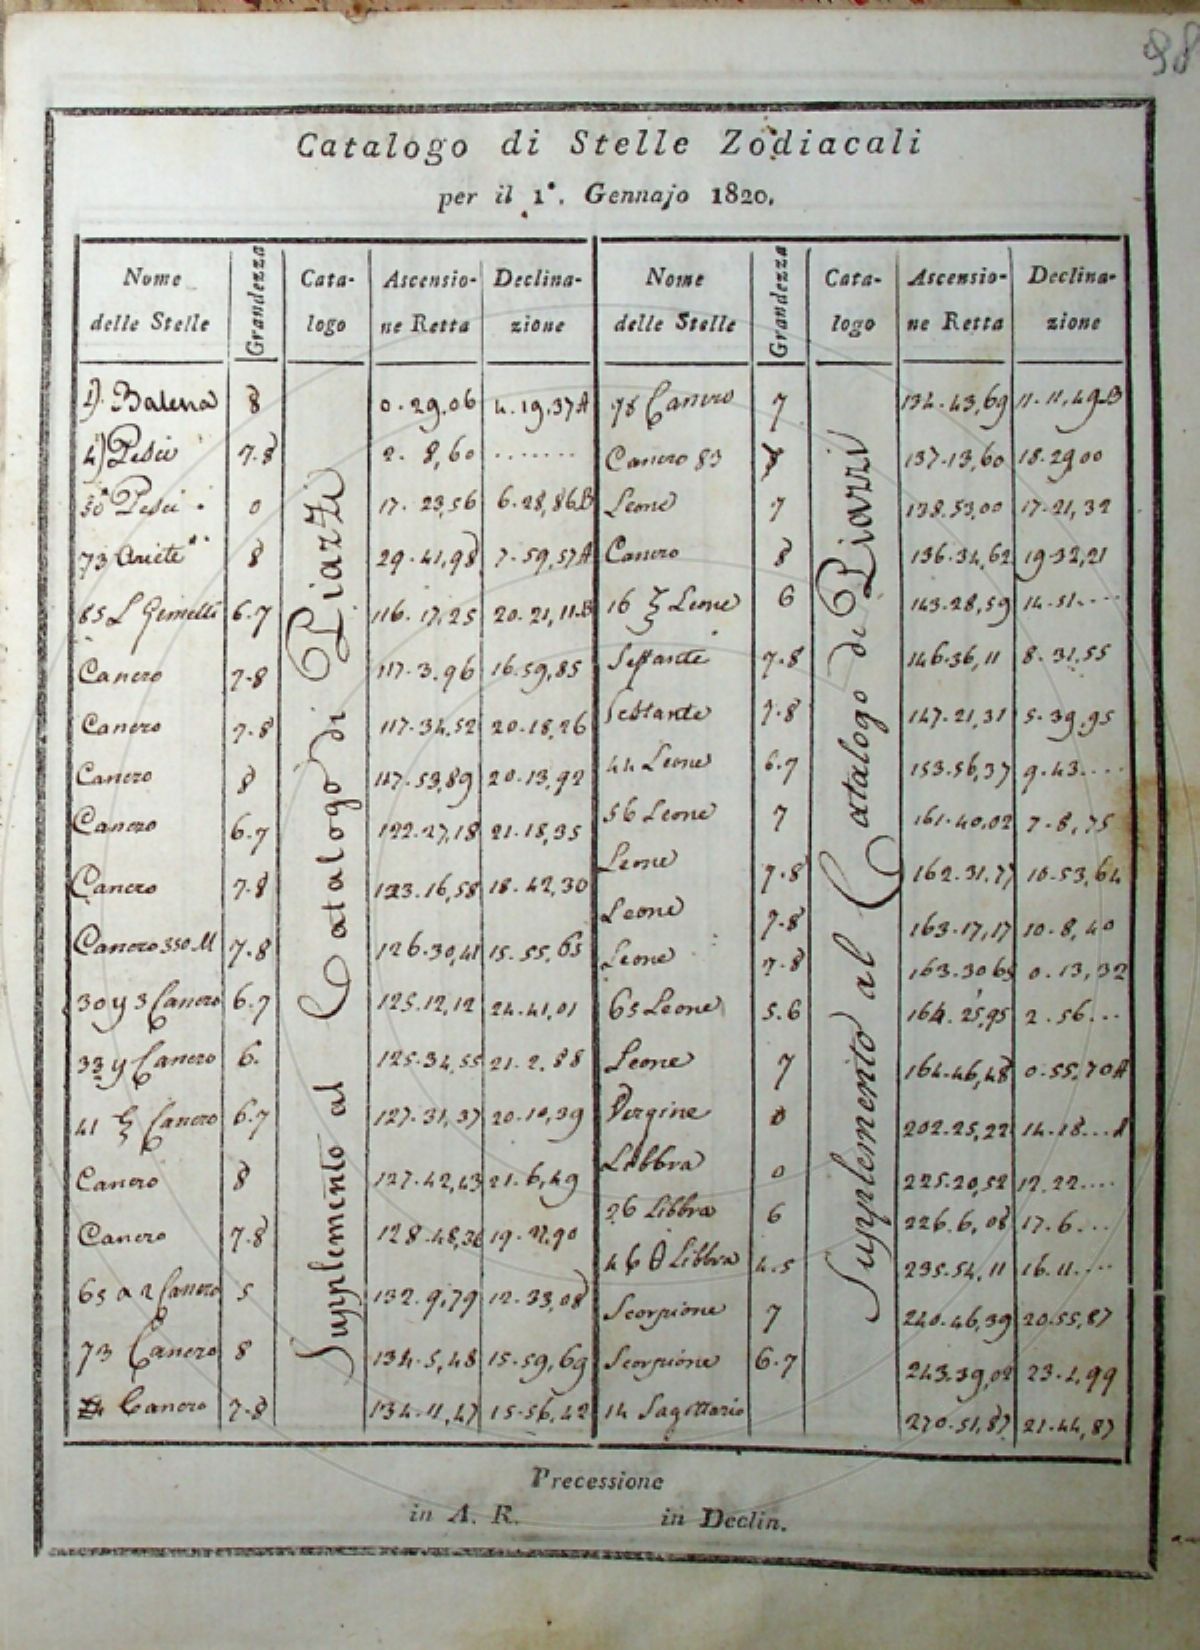 98
Catalogo di Stelle Zodiacali
per il 1°. Gennajo 1820.
Nome delle Stelle Grandezza Cata-logo Ascensio-ne Retta Declina-zione
Balena 8 0.29,06 4.19,37A
Pesci 7.8 2. 8,60 .......
Pesci 0 17. 23,56 6.28,86B
73 Ariete 8 29.41,98 7.59,57A
85 L Gemelli 6.7 116.17,25 20.21,11B
Cancro 7.8 117.3,96 16.59,85
Cancro 7.8 117.34,52 20.18,26
Cancro 8 117.53,89 20.13,92
Cancro 6.7 122.27,18 21.18,35
Cancro 7.8 123.16,58 18.42,30
Cancro 350 M 7.8 126.30,41 15.55,65
30 y 3 Cancro 6.7 125.12,12 24.41,01
33 y Cancro 6. 125.34,55 21.2,88
41 ξ Cancro 6.7 127.31,37 20.10,39
Cancro 8 127.42,43 21.6,49
Cancro 7.8 128.48,36 19.27,90
65 α 2 Cancro 5 132.9,79 12.33,08
73 Cancro 8 134.5,48 15.59,69
Cancro 7.8 134.11,47 15.56,42
Supplemento al Catalogo di Piazzi
Nome delle Stelle Grandezza Cata-logo Ascensio-ne Retta Declina-zione
78 Cancro 7 134.43,69 11.11,49B
Cancro 83 137.13,60 18.29 00
Leone 7 138.53,00 17.21,32
Cancro 8 136.34,62 19.32,21
16 ξ Leone 6 143.28,59 14.51....
Sestante 7.8 146.36,11 8.31,55
Sestante 7.8 147.21,31 5.39,95
44 Leone 6.7 153.56,37 9.43....
56 Leone 7 161.40,02 7.8,75
Leone 7.8 162.31,77 10.53,64
Leone 7.8 163.17,17 10.8,40
Leone 7.8 163.30 65 0.13,32
65 Leone 5.6 164.25,95 2.56...
Leone 7 164.46,48 0.55,70A
Vergine 0 202.25,22 14.18...A
Libbra 0 225.20,52 12.22....
26 Libbra 6 226.6,08 17.6...
46 θ Libbra 4.5 235.54,11 16.11....
Scorpione 7 240.46,39 20.55,87
Scorpione 6.7 243.39,02 23.2,99
14 Sagittario 270.51,87 21.44,87
Supplemento al Catalogo di Piazzi
Precessione
in A. R. in Declin.